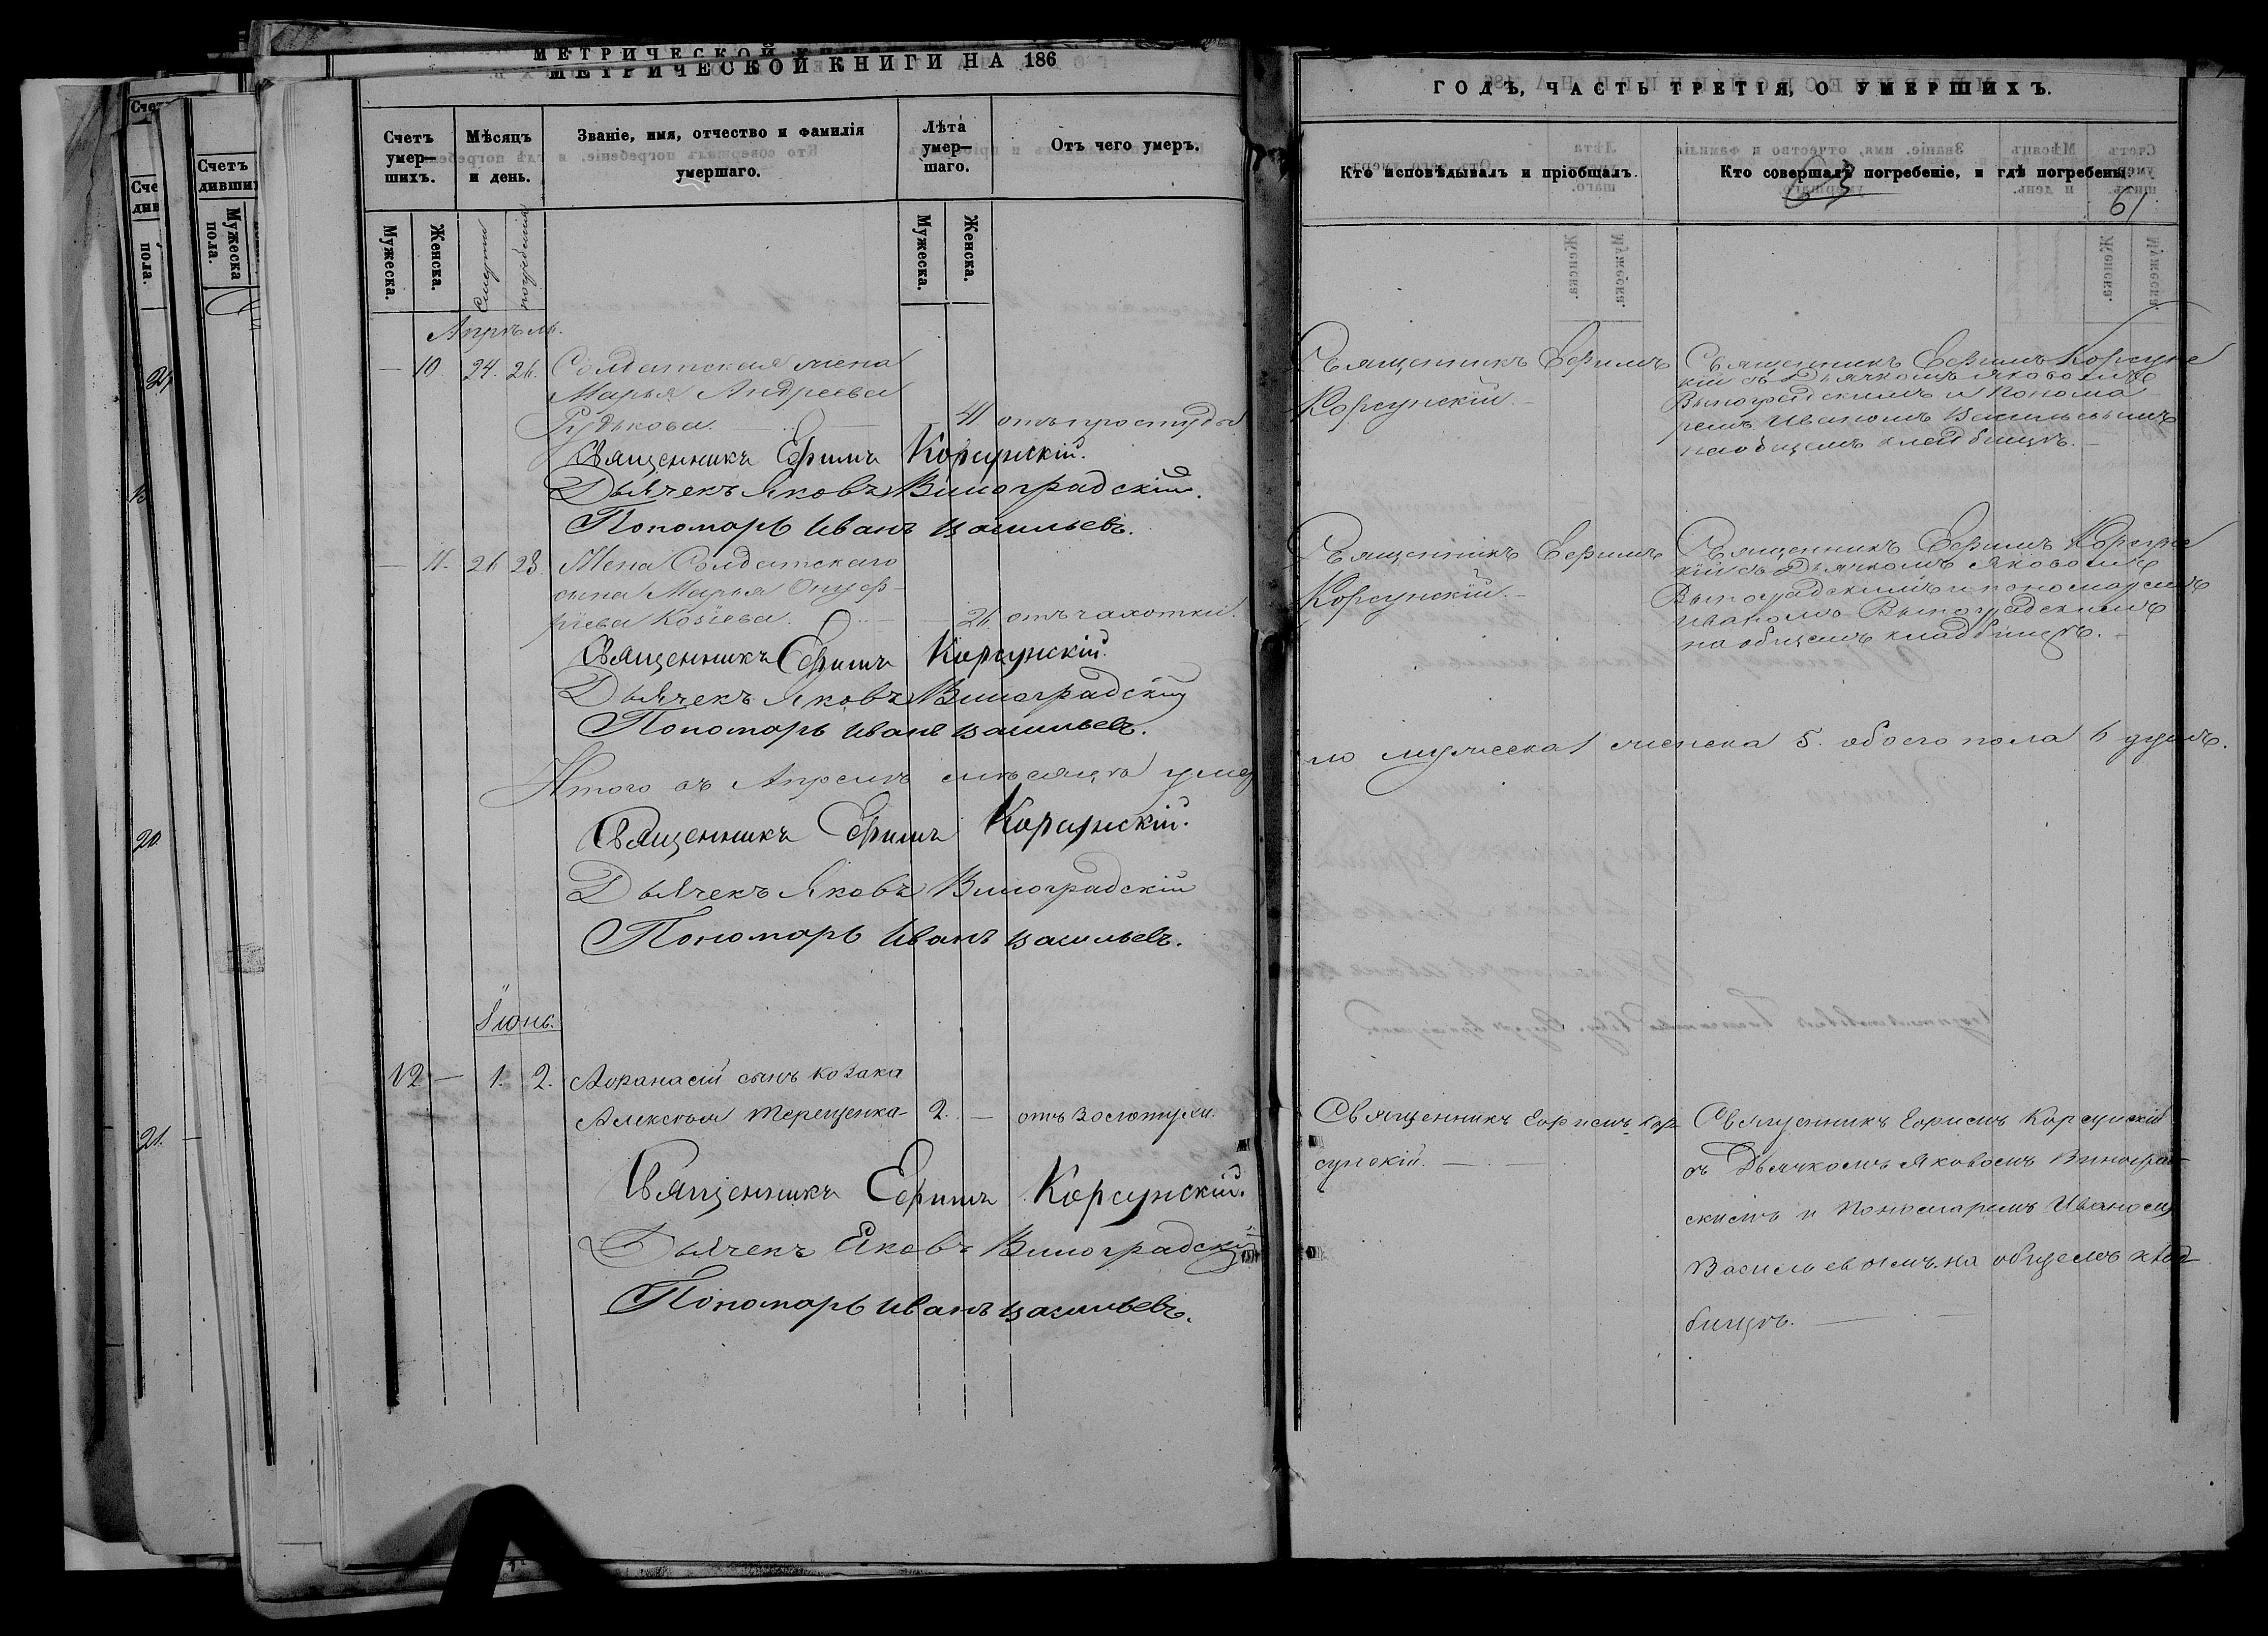 МЕТРИЧЕСКОЙ КНИГИ НА 186
Счетъ умер—шихъ.
Мѣсяцъ и день.
Званіе, имя, отчество и фамилія умершаго.
Лѣта умер—шаго.
Отъ чего умеръ.
Мужеска.
Женска.
смерти
погребенія
Мужеска.
Женска.
Апрѣль.
— 10 24. 26. Солдатская жена
Марья Андреева
Рудькова. — 41 отъ простуды
Священникъ Ефимъ Корсунскій.
Дьячекъ Яковъ Виноградскій.
Пономарь Иванъ Васильевъ.
— 11. 26 28. Жена Солдатскаго
сына Марья Онуф-
ріева Козіева. — 26 отъ чахотки.
Священникъ Ефимъ Корсунскій.
Дьячекъ Яковъ Виноградскій
Пономарь Иванъ Васильевъ.
Итого въ Апрелѣ мѣсяцѣ умер
Священникъ Ефимъ Корсунскій.
Дьячекъ Яковъ Виноградскій
Пономарь Иванъ Васильевъ.
Іюнь.
12 — 1. 2. Афанасій сынъ козака
Алексѣя Терещенка 2. — отъ золотухи.
Священникъ Ефимъ Корсунскій.
Дьячекъ Яковъ Виноградскій
Пономарь Иванъ Васильевъ.
ГОДЪ, ЧАСТЬ ТРЕТІЯ, О УМЕРШИХЪ.
Кто исповѣдывалъ и пріобщалъ.
Кто совершалъ погребеніе, и гдѣ погребены.
63
61
Священникъ Ефимъ
Корсунскій.
Священникъ Ефимъ Корсунс
кій съ Дьячкомъ Яковомъ
Виноградскимъ и Понома
ремъ Иваномъ Васильевымъ
на общемъ кладбищѣ.
Священникъ Ефимъ
Корсунскій.
Священникъ Ефимъ Корсунс
кій съ Дьячкомъ Яковомъ
Виноградскимъ и пономаремъ
Иваномъ Виноградскимъ
на общемъ кладбищѣ.
ло мужеска 1 женска 5. обоего пола 6 душъ.
Священникъ Ефимъ Кор-
сунскій.
Священникъ Ефимъ Корсунскій
съ Дьячкомъ Яковомъ Виноград-
скимъ и Пономаремъ Иваномъ
Васильевымъ на общемъ клад-
бищѣ.
Счетъ
дивших
Мужеска пола.
Сче
див
пола.
20.
21.